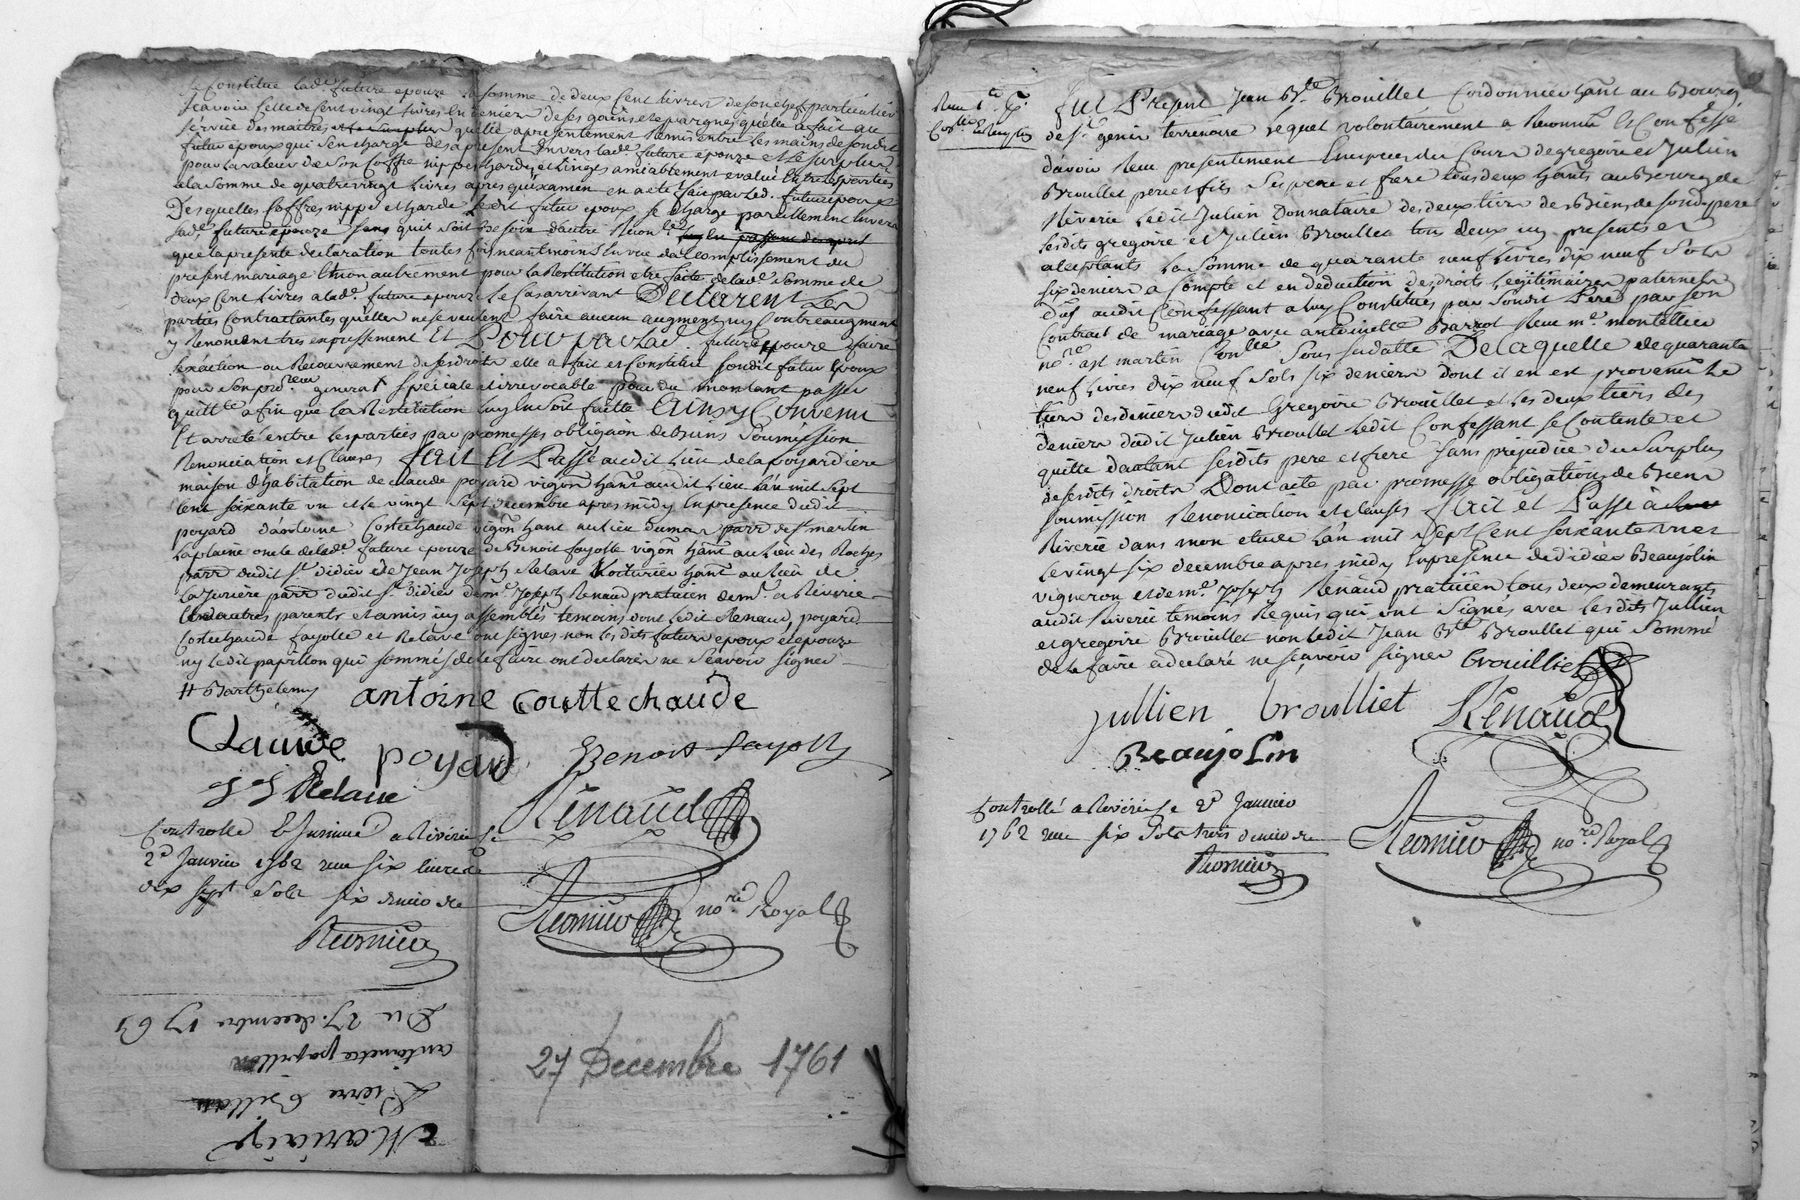 Se Constitue lad.e future epouze la somme de deux Cent livres de son chef particulier
scavoir celle de Cent vingt livres en deniers de ses gains et epargnes quelle a fait au
service des maitres quelle a presentement Remis entre les mains de sondit
futur epoux qui s'en charge des a present Envers lad.e future epouze et le surplus
pour la valeur de son Coffre nippes hardes et linges amiablement evalué entre les parties
a la somme de quatre vingt livres apres qu'examen en a eté fait par led. futur epoux
Desquelles Coffres nippe et harde ledit futur epoux se charge pareillement Envers
lad.e future epouze sans quil soit Besoin dautre
que la presente declaration toutes fois neantmoins En vue da Complissement du
present mariage Et non autrement pour la Restitution etre faite de lad.e somme de
deux Cent livres a lad.e future epouze le Cas arrivant Declarent les
parties Contractantes quelles ne se veulent faire aucun augment ny Contreaugment
y Renoncent tres expressement Et Pour par lad. future epouze faire
l'exaction ou Recouvrement de ses droits elle a fait et Constitué sondit futur Epoux
pour son proc.reur general special et irrevocable pour du montant passer
quitt.ce afin que la Restitution luy En soit faitte Ainsy Convenu
Et arreté entre les parties par promesses obligaon de Biens Soumission
Renonciation et Clauses fait Et Passé audit Lieu de la poyardiere
maison d'habitation de claude poyard vigron hant audit Lieu L'an mil sept
Cent soixante un et le vingt sept decembre apres midy En presence dudit
poyard d'antoine Couttechaude vigron hant au lieu du mas parr de st martin
la plaine oncle de lad.e future epouze de Benoit fayolle vigron hant au Lieu des Roches
parr dudit st didier et de Jean Joseph Relave Voiturier hant au lieu de
la parr dudit st didier de m.e Joseph Renaud praticien dem.t a Riverie
Et dautres parents et amis icy assemblés temoins dont ledit Renaud, poyard
Couttechaude fayolle et Relave ont signés non les dits futurs epoux et epouze
ny ledit papillon qui sommés de le faire ont declarés ne scavoir signer
# Barthelemy
antoine couttechaude
Claude poyard
Benoit fayolle
J J Relave
Renaud
Controllé Et Insinué a Riverie le
2d Janvier 1762 receu six livres
dix sept sols six deniers
no.re Royal
27 Decembre 1761
Mariage
Pierre
antoinette papillon
Du 27. decembre 1761
fut Present Jean B.te Brouillet Cordonnier hant au Bourg
de s.t genis terrenoire lequel volontairement a Reconnu Et Confessé
d'avoir Receu presentement En especes du Cours de gregoire et Julien
Brouillet pere et fils Ses pere et frere tous deux hants au Bourg de
Riverie Ledit Julien Donnataire des deux tiers des Biens de sondit pere
Lesdits gregoire et Julien Broullet tous deux icy presents et
aceptants La Somme de quarante neuf livres dix neuf Sols
six deniers a Compte et en deduction des droits Legitimaires paternels
dus audit Confessant a luy Constitués par Sondit Pere par son
Contrat de mariage avec antoinette Barrot Receu m.e montellier
no.re a st martin Sous sa datte De laquelle de quarante
neuf Livres dix neuf sols six deniers dont il en est provenu le
tiers des deniers dudit Gregoire Brouillet et Les deux tiers des
deniers dudit Julien Broullet Ledit Confessant se Contente et
quitte d'autant sesdits pere et frere sans prejudice du surplus
de sesdits droits Dont acte par promesse obligation de Biens
soumission Renonciation et clauses fait et Passé à
Riverie dans mon etude L'an mil sept Cent soixante un et
le vingt six decembre apres midy En presence de didier Beaujolin
vigneron et de m.e Joseph Renaud praticien tous deux demeurants
audit Riverie temoins Requis qui ont Signés avec Lesdits Jullien
et gregoire Brouillet non ledit Jean B.te Broullet qui Sommé
de le faire a declaré ne scavoir signer brouilliet
jullien broulliet
Renaud
Beaujolin
Controllé a Riverie le 2d Janvier
1762 receu six sols trois deniers
no.re Royal